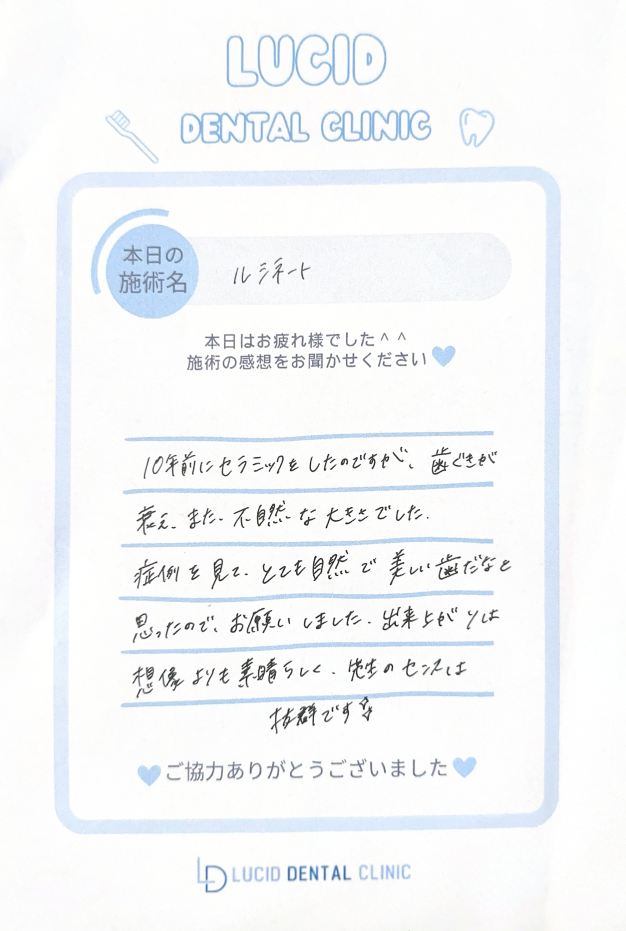 LUCID
DENTAL CLINIC
本日の
施術名
ルシネート
本日はお疲れ様でした^ ^
施術の感想をお聞かせください
10年前にセラミックをしたのですが、歯ぐきが
衰え、また、不自然な大きさでした.
症例を見て、とても自然で美しい歯だなと
思ったので、お願いしました. 出来上がりは
想像よりも素晴らしく、先生のセンスは
抜群です☆
ご協力ありがとうございました
LD LUCID DENTAL CLINIC